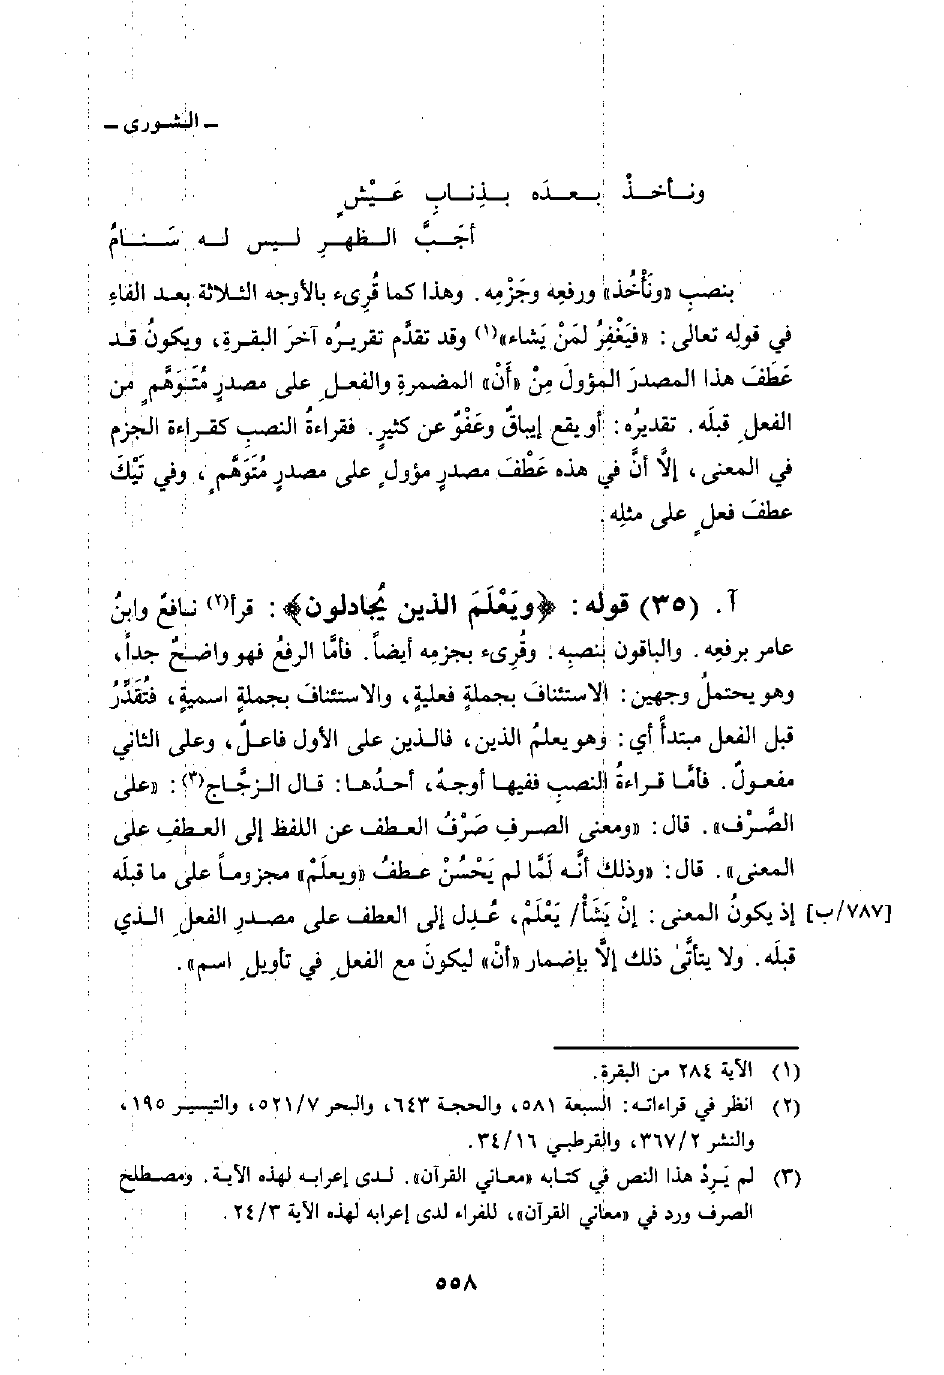 ـ الشورى ـ
ونـأخـذْ بـعـدَه بـذِنـابِ عَـيْـشٍ
أجَـبَّ الـظهـرِ لـيـس لـه سَـنـامُ
بنصبِ «ونَأْخُذ» ورفعِه وجَزْمِه. وهذا كما قُرِىء بالأوجه الثـلاثة بعـد الفاءِ
في قولِه تعالى: «فيَغْفِرُ لمَنْ يَشاء»(١) وقد تقدَّم تقريـرُه آخـرَ البقـرةِ، ويكونُ قـد
عَطَفَ هـذا المصدرَ المؤولَ مِنْ «أَنْ» المضمرةِ والفعـلِ على مصدرٍ مُتَوَهَّمٍ من
الفعلِ قبلَه. تقديرُه: أو يقع إيباقٌ وعَفْوٌ عن كثيرٍ. فقراءةُ النصبِ كقـراءة الجزم
في المعنى، إلَّا أنَّ في هذه عَطْفَ مصدرٍ مؤولٍ على مصدرٍ مُتَوَهَّمٍ، وفي تَيْكَ
عطفَ فعلٍ على مثلِه.
آ. (٣٥) قوله: ﴿ويَعْلَمَ الذين يُجادلون﴾: قرأ(٢) نـافعٌ وابنُ
عامر برفعِه. والباقون بنصبِه. وقُرِىء بجزمِه أيضاً. فأمَّا الرفعُ فهو واضـحٌ جداً،
وهو يحتملُ وجهين: الاستئنافَ بجملةٍ فعلية، والاستئنافَ بجملةٍ اسميةٍ، فتُقَدِّرُ
قبل الفعل مبتدأً أي: وهو يعلمُ الذين، فالـذين على الأول فاعـلٌ، وعلى الثاني
مفعولٌ. فأمَّا قـراءةُ النصبِ ففيها أوجهٌ، أحدُهـا: قـال الـزجَّاج(٣): «على
الصَّرْف». قال: «ومعنى الصرفِ صَرْفُ العـطف عن اللفظ إلى العـطفِ على
المعنى». قال: «وذلك أنَّـه لَمَّا لم يَحْسُنْ عـطفُ «ويعلَمْ» مجزومـاً على ما قبلَه
[٧٨٧/ب] إذ يكونُ المعنى: إنْ يَشَأْ/ يَعْلَمْ، عُـدِل إلى العطف على مصدرِ الفعلِ الـذي
قبلَه. ولا يتأتَّىٰ ذلك إلَّا بإضمار «أنْ» ليكونَ مع الفعلِ في تأويلِ اسم».
(١) الآية ٢٨٤ من البقرة.
(٢) انظر في قراءاته: السبعة ٥٨١، والحجة ٦٤٣، والبحر ٥٢١/٧، والتيسير ١٩٥،
والنشر ٣٦٧/٢، والقرطبي ٣٤/١٦.
(٣) لم يَرِدْ هذا النص في كتابه «معاني القرآن». لـدى إعرابه لهذه الآية. ومصطلح
الصرف ورد في «معاني القرآن»، للفراء لدى إعرابه لهذه الآية ٢٤/٣.
٥٥٨